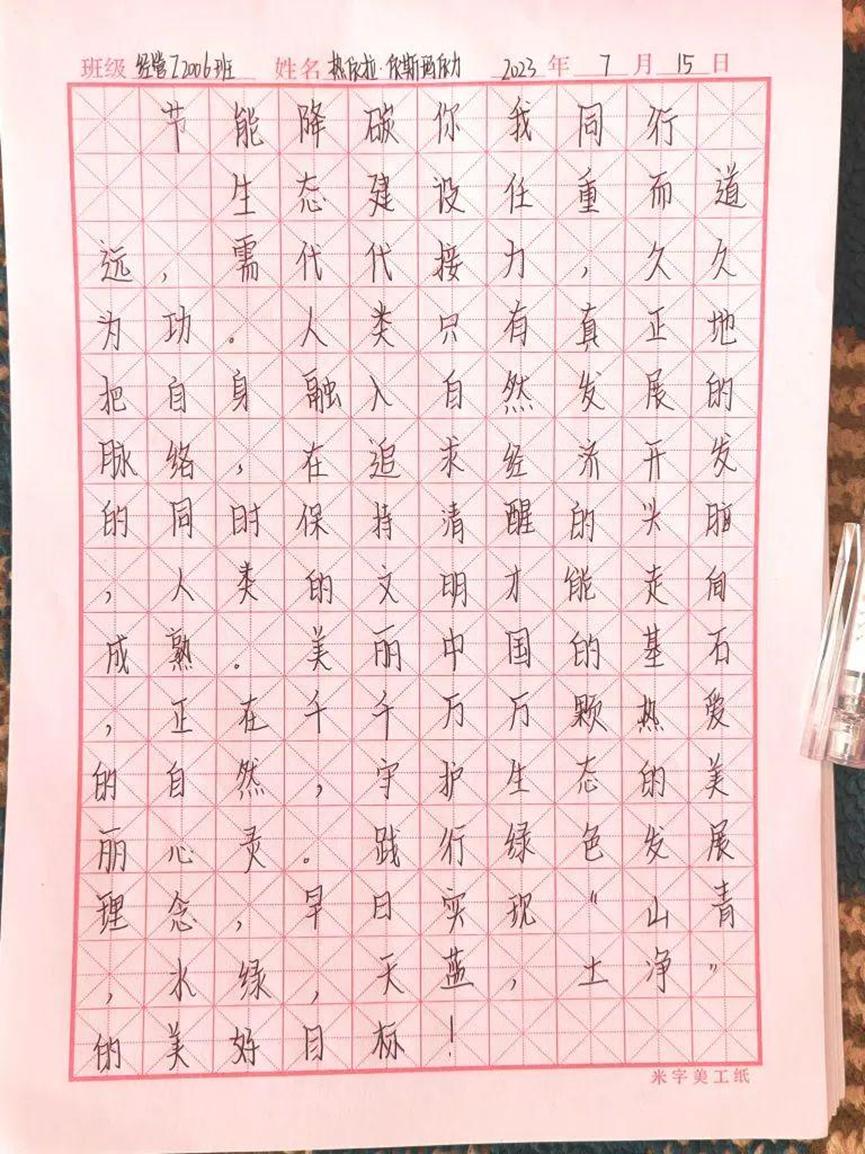 班级 经管Z2006班 姓名 热依拉·依斯玛依力 2023 年 7 月 15 日
节能降碳你我同行
生态建设任重而道
远，需代代接力，久久
为功。人类只有真正地
把自身融入自然发展的
脉络，在追求经济开发
的同时保持清醒的头脑
，人类的文明才能走向
成熟。美丽中国的基石
，正在千千万万颗热爱
的自然，守护生态的美
丽心灵。践行绿色发展
理念，早日实现“山青
，水绿，天蓝，土净”
的美好目标！
米字美工纸